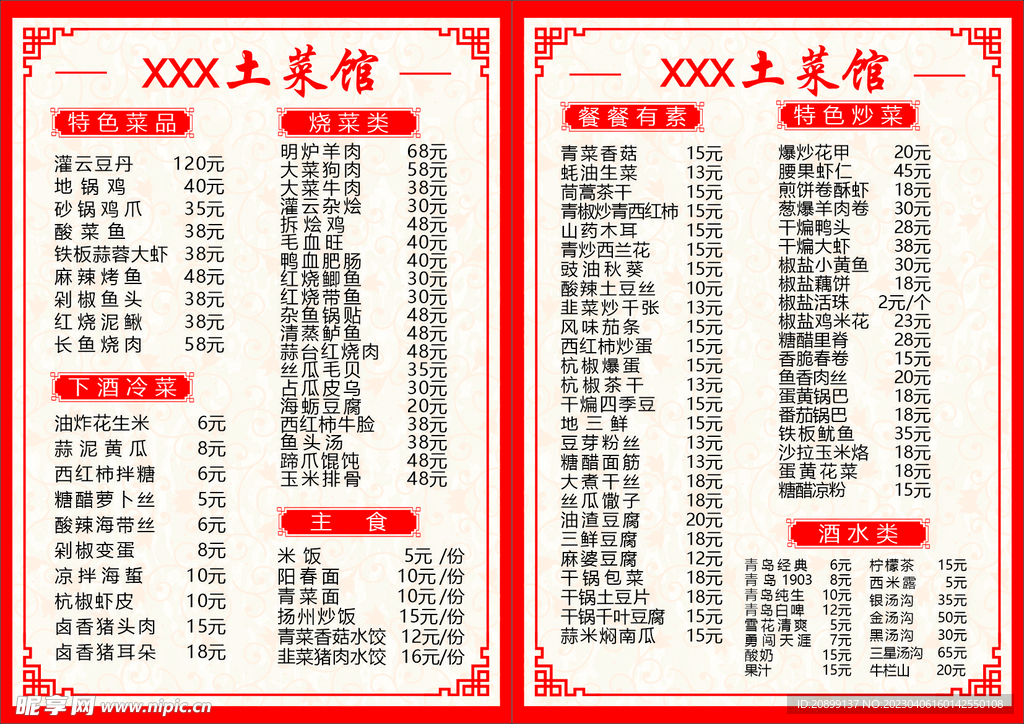 XXX土菜馆
特色菜品
灌云豆丹 120元
地锅鸡 40元
砂锅鸡爪 35元
酸菜鱼 38元
铁板蒜蓉大虾 38元
麻辣烤鱼 48元
剁椒鱼头 38元
红烧泥鳅 38元
长鱼烧肉 58元
下酒冷菜
油炸花生米 6元
蒜泥黄瓜 8元
西红柿拌糖 6元
糖醋萝卜丝 5元
酸辣海带丝 6元
剁椒变蛋 8元
凉拌海蜇 10元
杭椒虾皮 10元
卤香猪头肉 15元
卤香猪耳朵 18元
烧菜类
明炉羊肉 68元
大菜狗肉 58元
大菜牛肉 38元
灌云杂烩 30元
拆烩鸡 48元
毛血旺 40元
鸭血肥肠 40元
红烧鲫鱼 30元
红烧带鱼 30元
杂鱼锅贴 48元
清蒸鲈鱼 48元
蒜台红烧肉 48元
丝瓜毛贝 35元
占瓜皮乌 30元
海蛎豆腐 20元
西红柿牛脸 38元
鱼头汤 38元
蹄爪馄饨 48元
玉米排骨 48元
主食
米饭 5元/份
阳春面 10元/份
青菜面 10元/份
扬州炒饭 15元/份
青菜香菇水饺 12元/份
韭菜猪肉水饺 16元/份
XXX土菜馆
餐餐有素
青菜香菇 15元
蚝油生菜 13元
茼蒿茶干 15元
青椒炒青西红柿 15元
山药木耳 15元
青炒西兰花 15元
豉油秋葵 15元
酸辣土豆丝 10元
韭菜炒千张 13元
风味茄条 15元
西红柿炒蛋 15元
杭椒爆蛋 15元
杭椒茶干 13元
干煸四季豆 15元
地三鲜 15元
豆芽粉丝 13元
糖醋面筋 13元
大煮干丝 18元
丝瓜馓子 18元
油渣豆腐 20元
三鲜豆腐 18元
麻婆豆腐 12元
干锅包菜 18元
干锅土豆片 18元
干锅千叶豆腐 15元
蒜米焖南瓜 15元
特色炒菜
爆炒花甲 20元
腰果虾仁 45元
煎饼卷酥虾 18元
葱爆羊肉卷 30元
干煸鸭头 28元
干煸大虾 38元
椒盐小黄鱼 30元
椒盐藕饼 18元
椒盐活珠 2元/个
椒盐鸡米花 23元
糖醋里脊 28元
香脆春卷 15元
鱼香肉丝 20元
蛋黄锅巴 18元
番茄锅巴 18元
铁板鱿鱼 35元
沙拉玉米烙 18元
蛋黄花菜 18元
糖醋凉粉 15元
酒水类
青岛经典 6元
青岛1903 8元
青岛纯生 10元
青岛白啤 12元
雪花清爽 5元
勇闯天涯 7元
酸奶 15元
果汁 15元
柠檬茶 15元
西米露 5元
银汤沟 35元
金汤沟 50元
黑汤沟 30元
三星汤沟 65元
牛栏山 20元
昵享网 www.nipic.cn
ID:20899137 NO:20230406160142550108